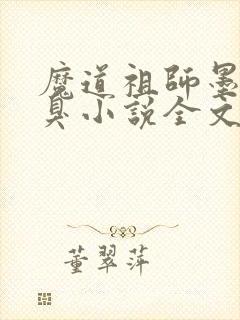 魔道祖師墨
臭小說全文
董翠萍